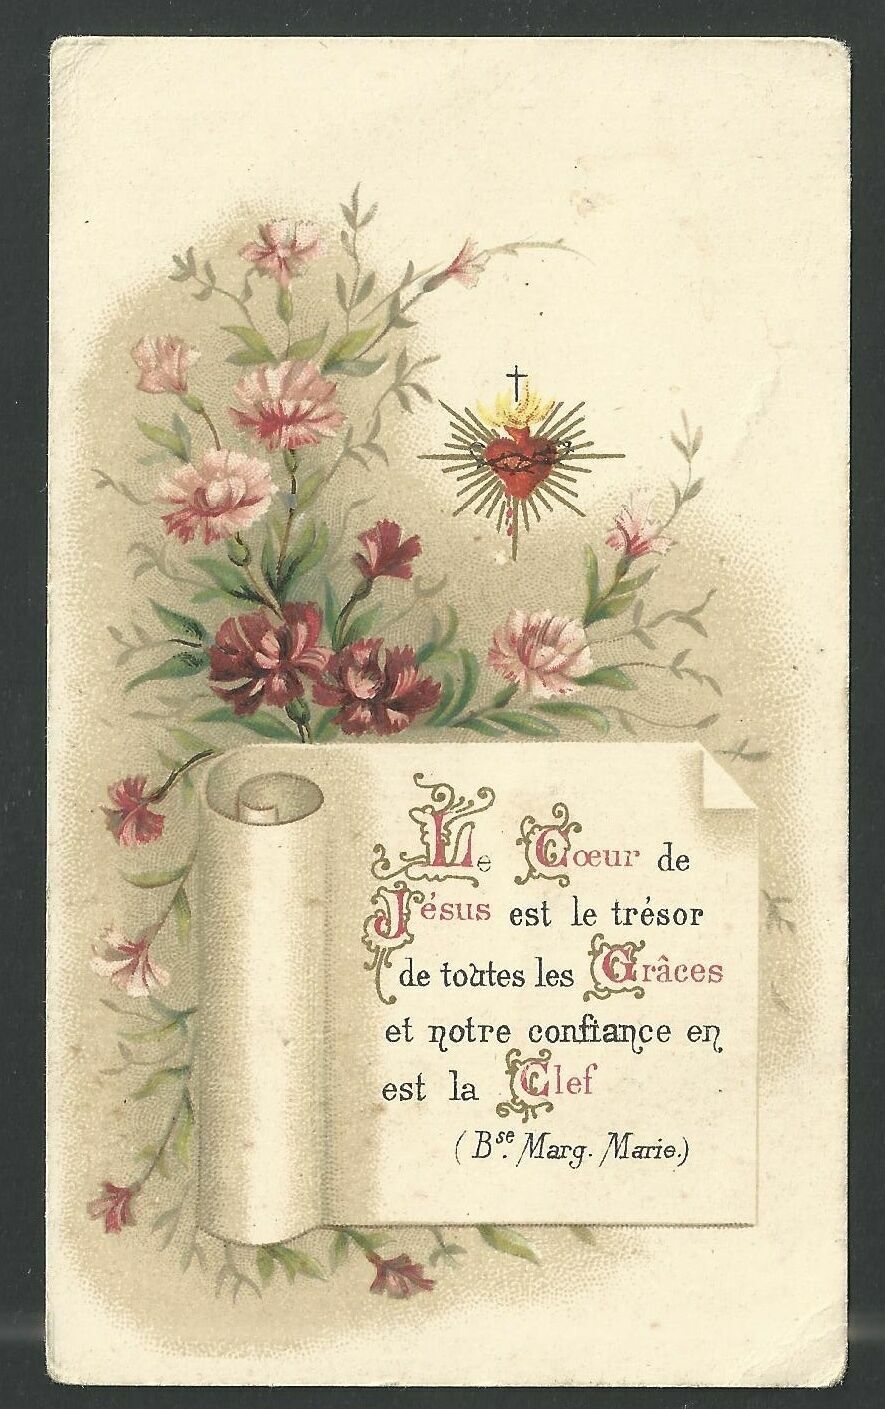 Le Cœur de
Jésus est le trésor
de toutes les Grâces
et notre confiance en
est la Clef
(Bse. Marg. Marie.)